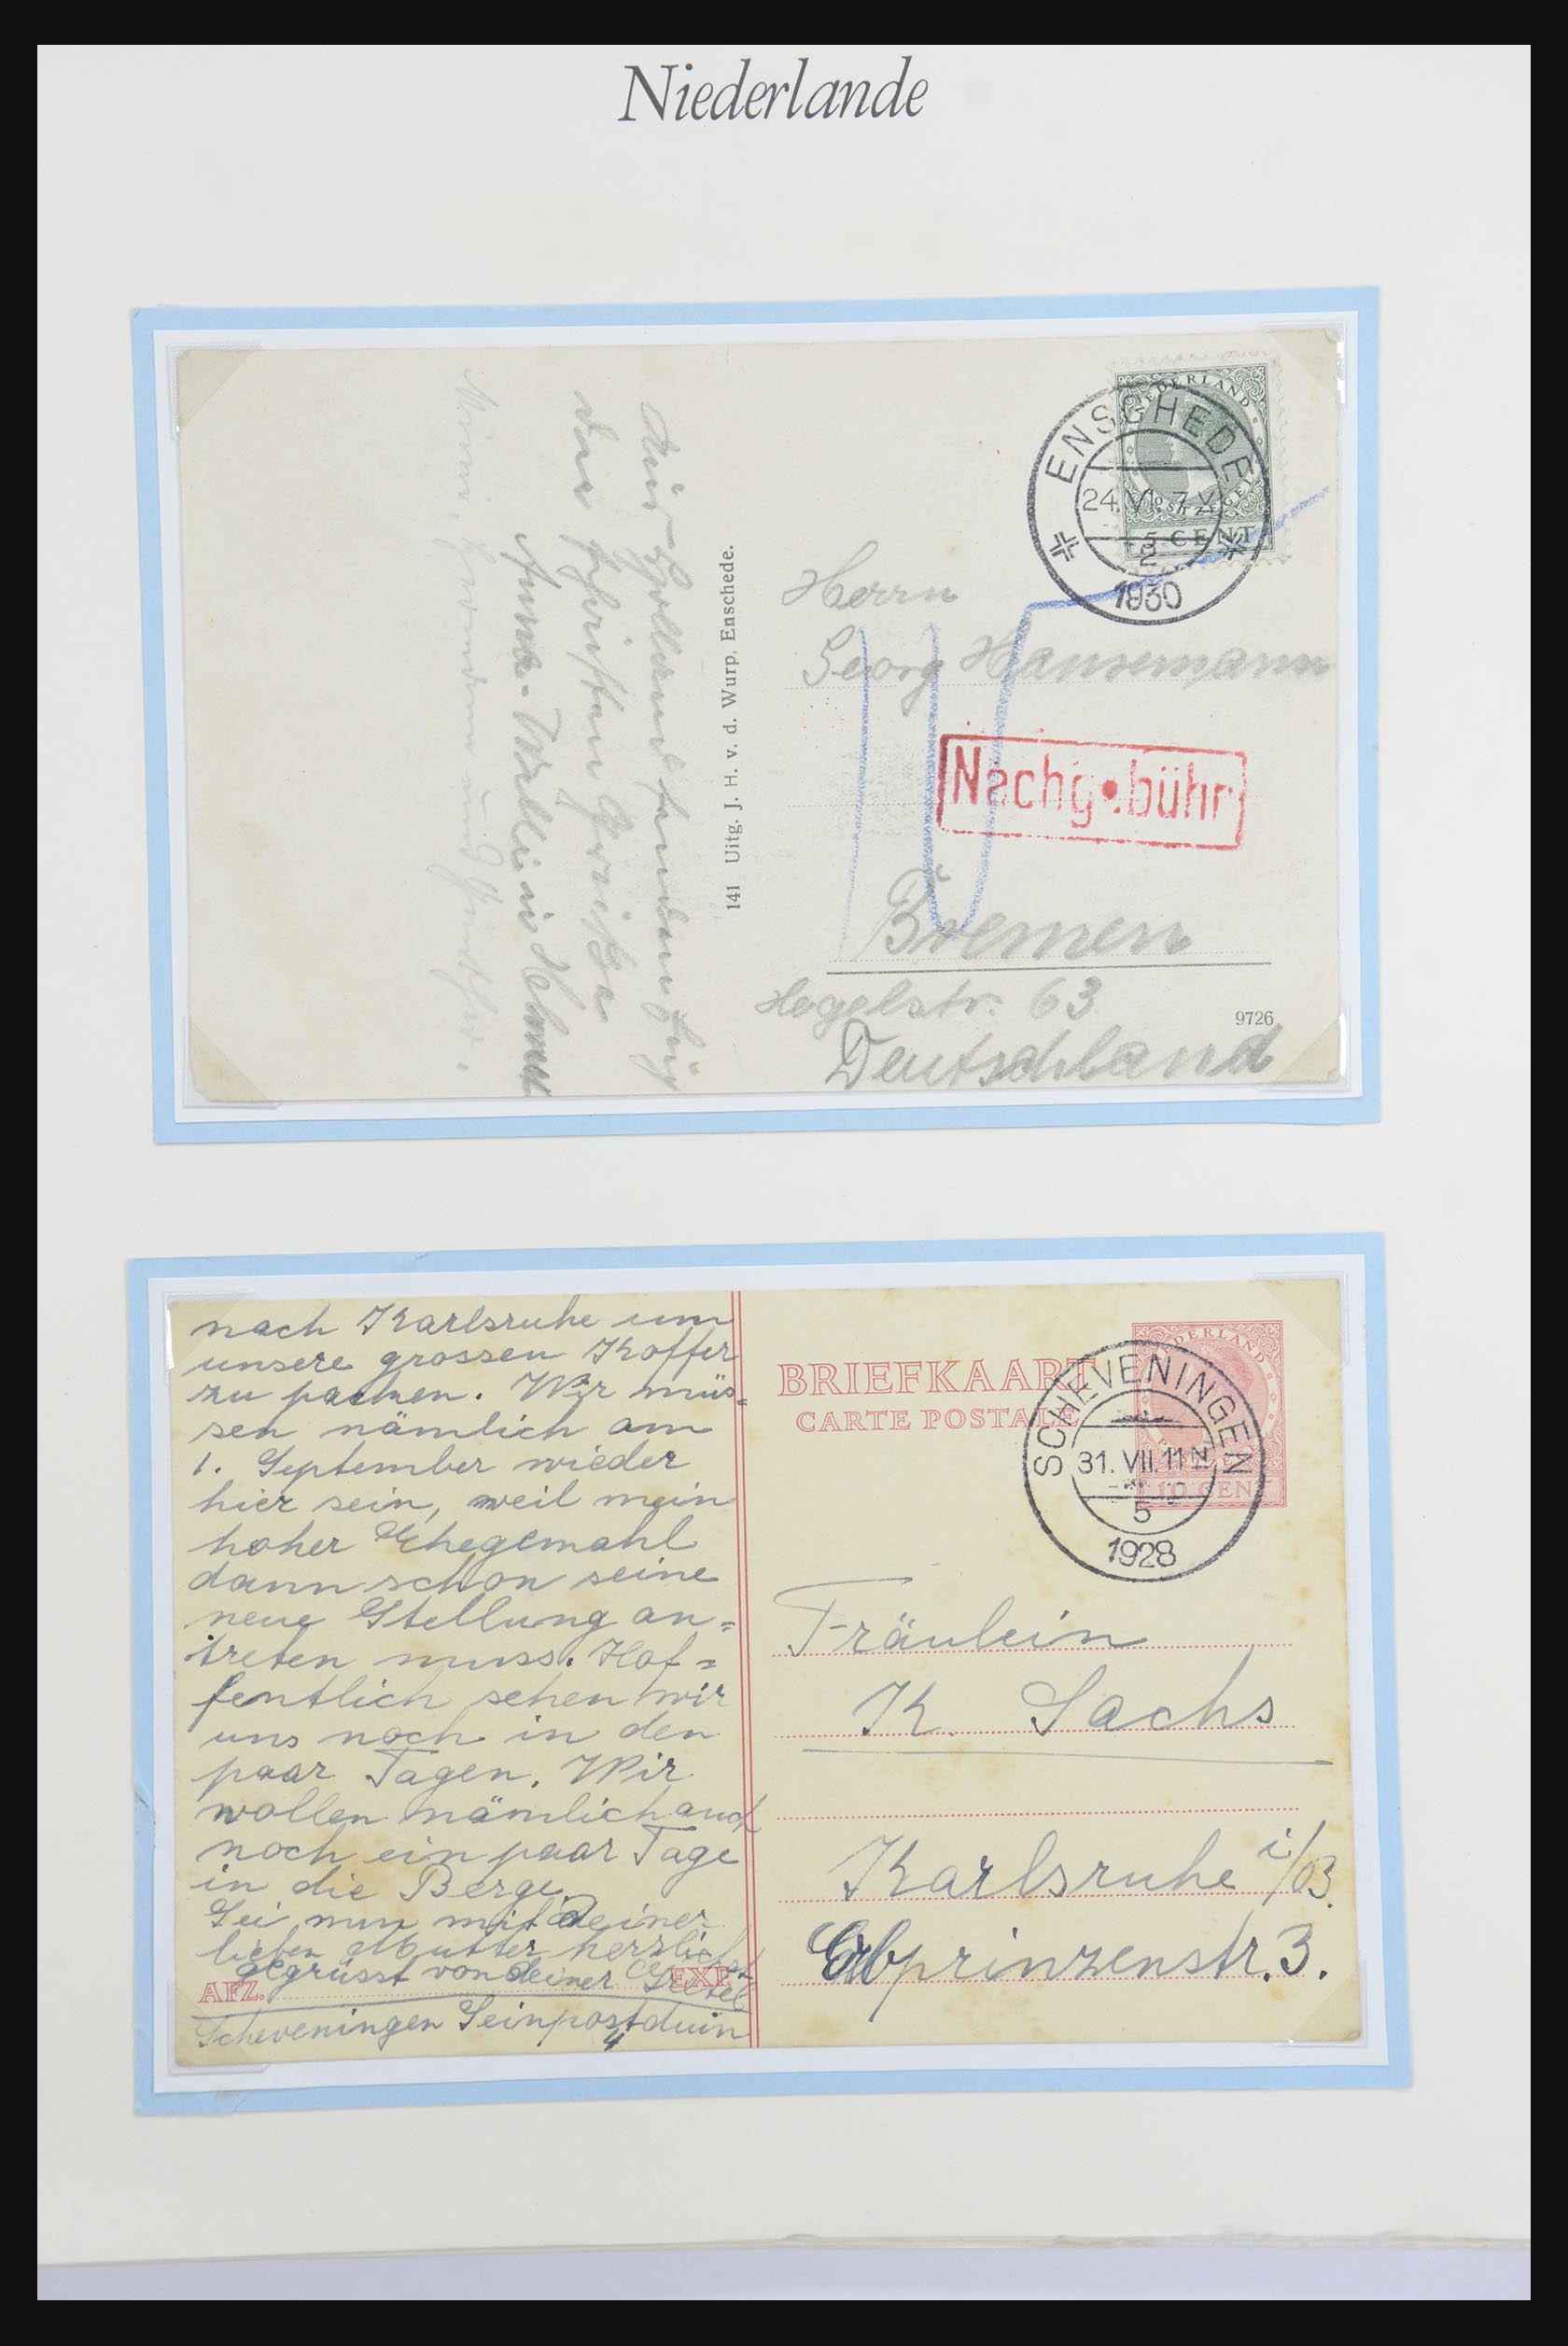 Niederlande
NEDERLAND
POSTZEGEL
5 CENT
ENSCHEDE
24.VI. 7 V
2
1930
Herrn
Georg Hansemann
Nachgebühr
10
Bremen
Hogelstr. 63
Deutschland
9726
141 Uitg. J. H. v. d. Wurp, Enschede.
Aus Holland senden
die
Anna
nach Karlsruhe um
unsere grossen Koffer
zu packen. Wir müs-
sen nämlich am
1. September wieder
hier sein, weil mein
hoher Ehegemahl
dann schon seine
neue Stellung an=
treten muss. Hof=
fentlich sehen wir
uns noch in den
paar Tagen. Wir
wollen nämlich auch
noch ein paar Tage
in die Berge.
Sei nun mit Deiner
lieben Mutter herzlichst
gegrüsst von Deiner Gretel
AFZ. EXP.
Scheveningen Seinpostduin
4
BRIEFKAART
CARTE POSTALE
NEDERLAND
10 CENT
SCHEVENINGEN
31. VII. 11 N
5
1928
Fräulein
K. Sachs
Karlsruhe i/B.
Erbprinzenstr. 3.